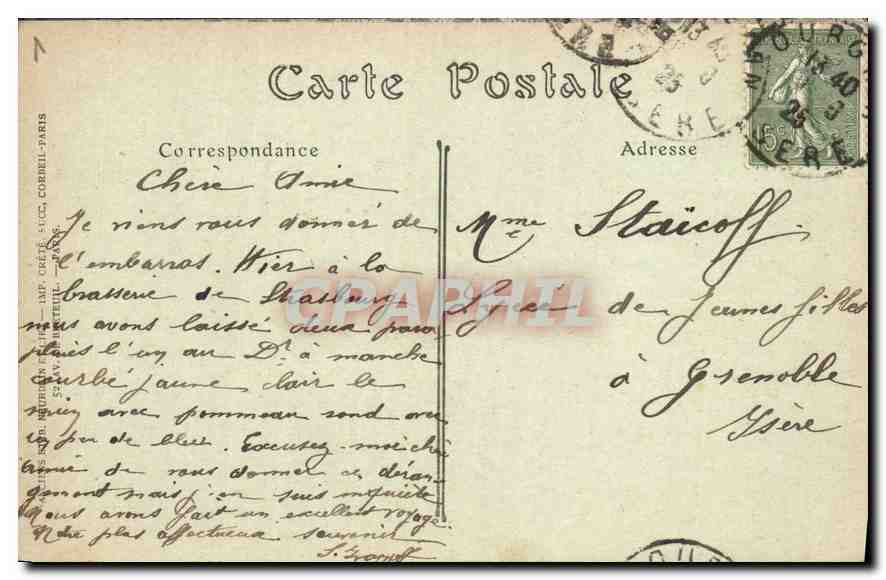 1
Carte Postale
Correspondance
Adresse
Chère Amie
Je viens vous donner de
l'embarras. Hier à la
brasserie de Strasbourg
nous avons laissé deux para-
pluies l'un au Dr à manche
courbé jaune clair le
mien avec pommeau rond avec
un peu de bleu. Excusez-moi chère
amie de vous donner ce déran-
gement mais j'en suis inquiète
Nous avons fait un excellent voyage.
Notre plus affectueux souvenir
Mme Staïcoff
Lycée de Jeunes filles
à Grenoble
Isère
CPAPHIL
BOURG
13 40
25
ISERE
15c
ANCIENS ETAB. NEURDEIN ET CIE. — IMP. CRÉTÉ, SUCC, CORBEIL-PARIS
52, AV. DE BRETEUIL. — PARIS.